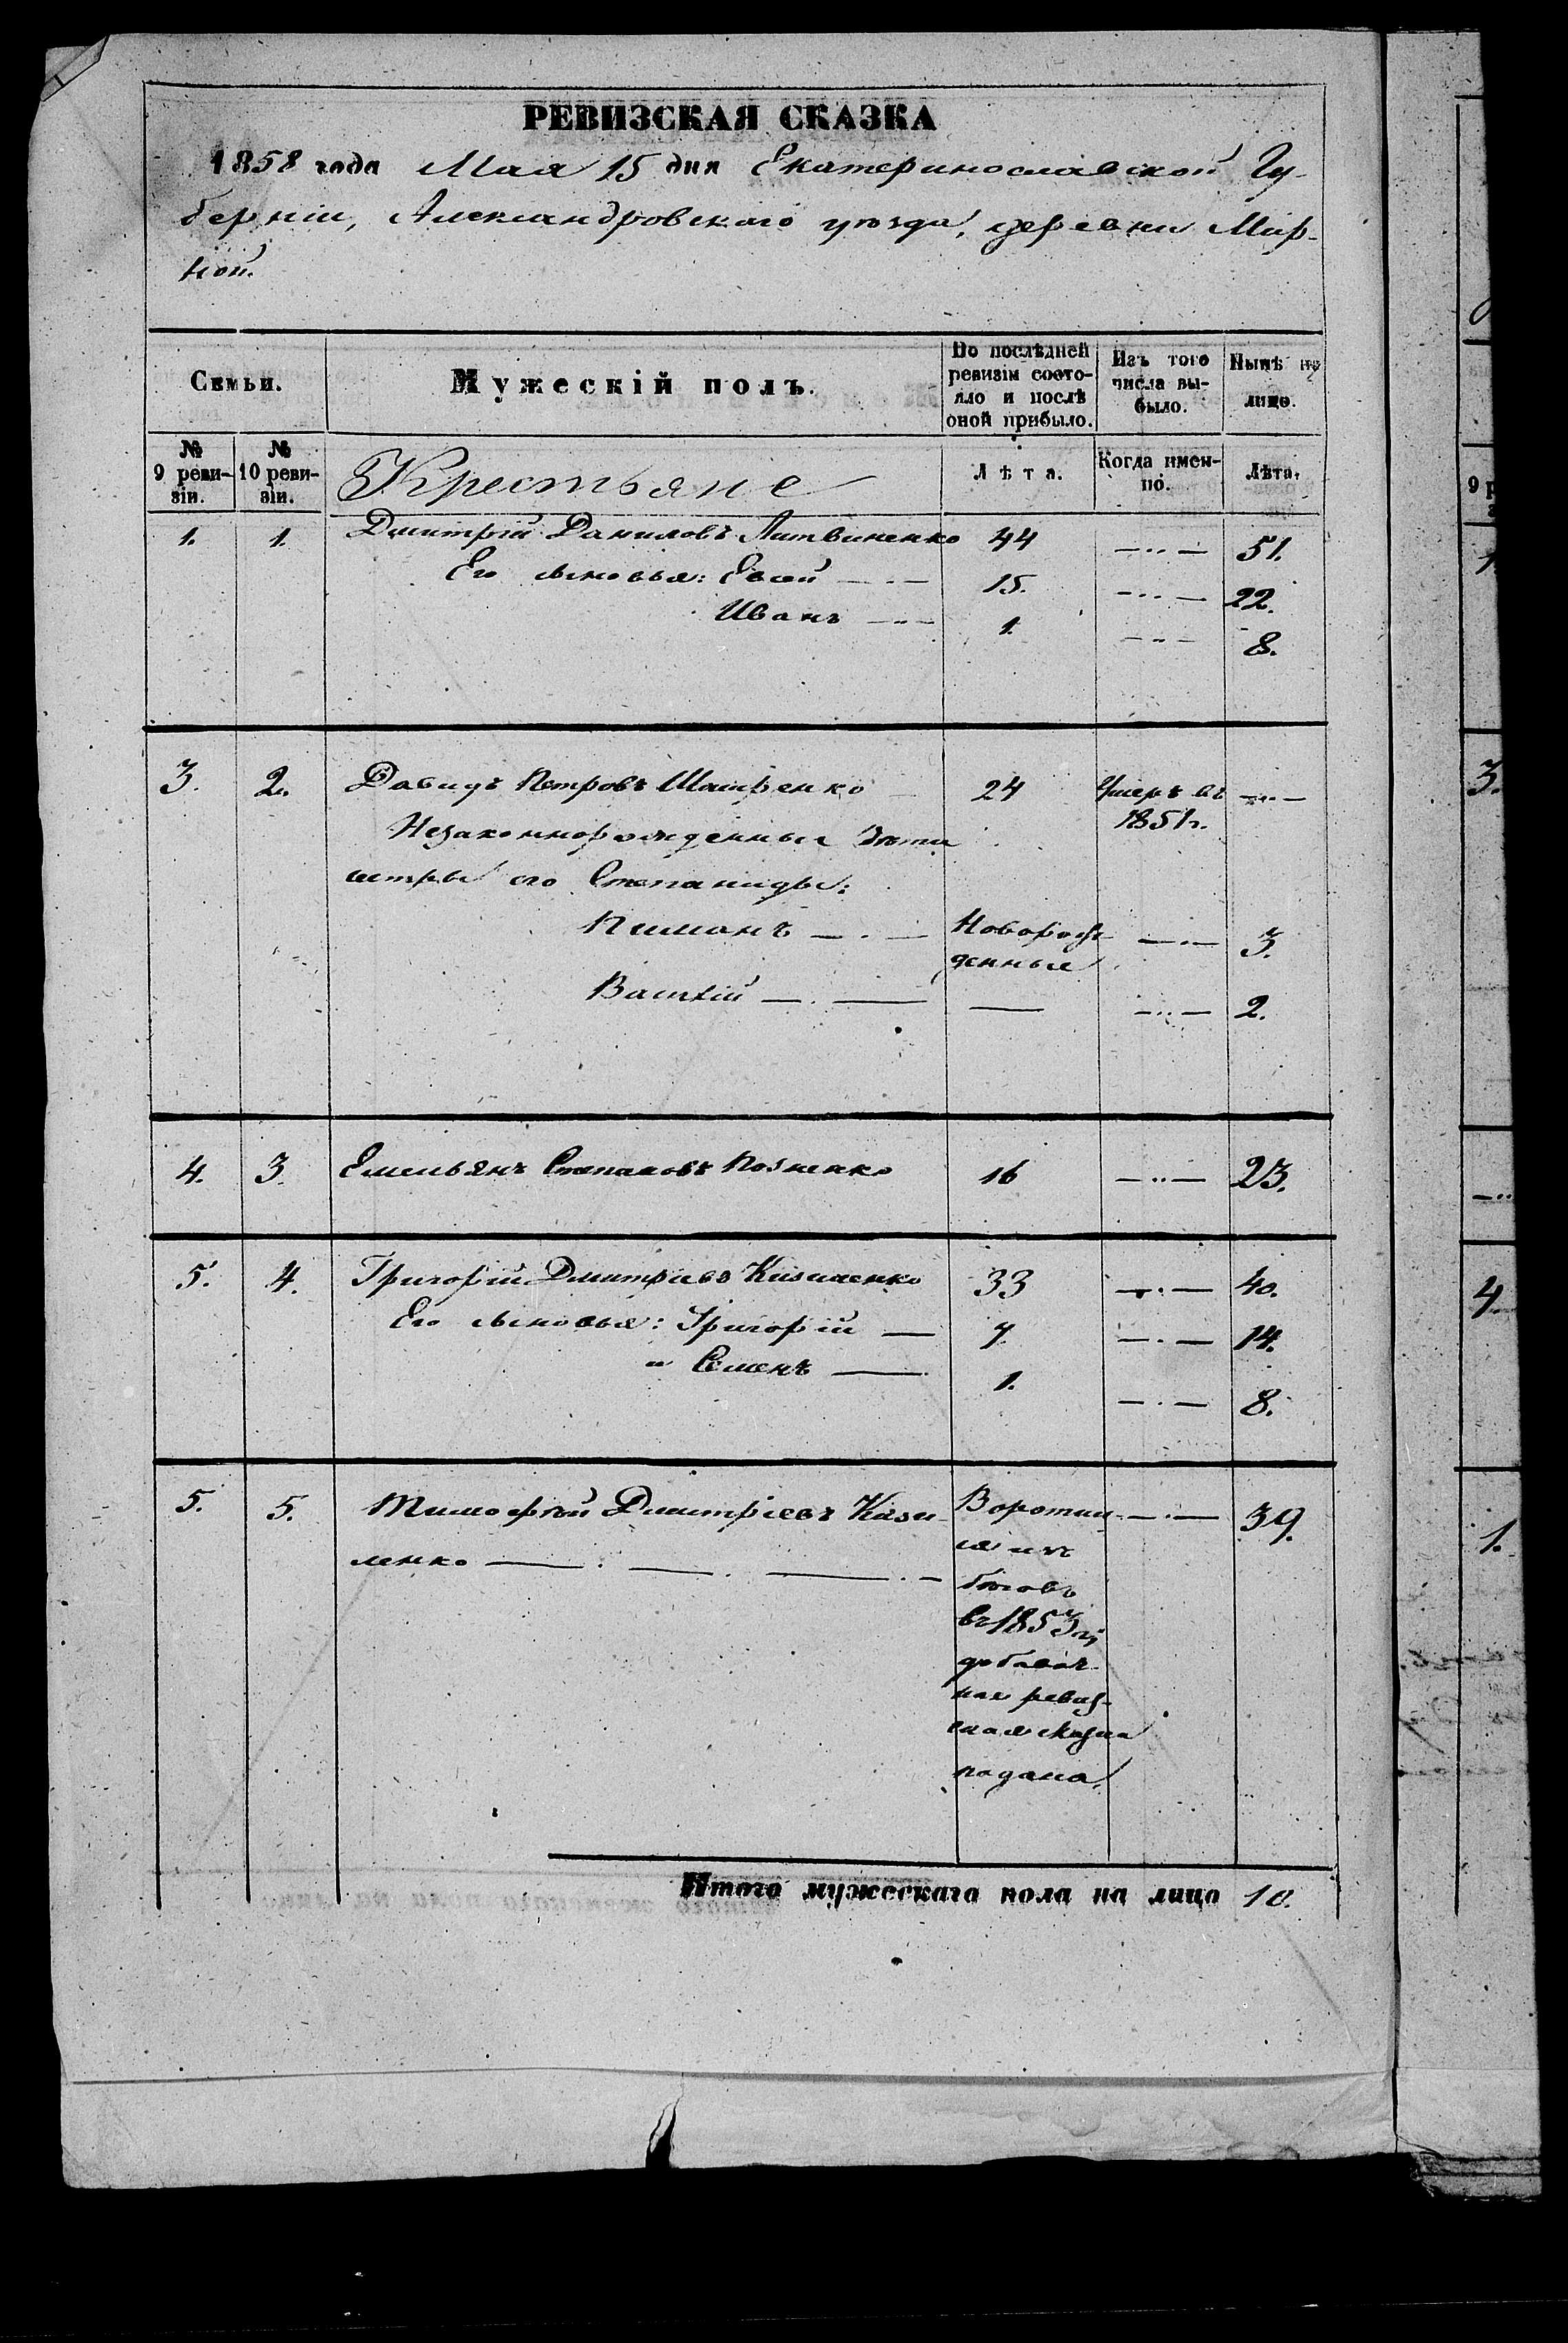 РЕВИЗСКАЯ СКАЗКА
1858 года Мая 15 дня Екатеринославской Гу-
берніи, Александровскаго уѣзда, деревни Мир-
ной.
Семьи. Мужескій полъ. По послѣдней ревизіи состо-яло и послѣ оной прибыло. Изъ того числа вы-было. Нынѣ на лицо.
№ 9 реви-зіи. № 10 реви-зіи. Крестьяне Лѣта. Когда имен-но. Лѣта.
1. 1. Дмитрій Даниловъ Литвиненко 44 51.
Его сыновья: Евсей 15. 22.
Иванъ 1. 8.
3. 2. Давидъ Петровъ 24 Умеръ въ 1851 г.
Незаконнорожденные дѣти
сестры его Степаниды:
Пиманъ Новорож-денные 3.
Василій 2.
4. 3. Емельянъ Степановъ 16 23.
5. 4. Григорій Дмитріевъ 33 40.
Его сыновья: Григорій 7 14.
и Семенъ 1. 8.
5. 5. Тимофей Дмитріевъ Кази- Воротил- 39.
ленко ся изъ
бѣговъ
въ 1853 г,
добавоч-
ная ревиз-
ская сказка
подана.
Итого мужескаго пола на лицо 10.
9 р
1
3.
4
1.